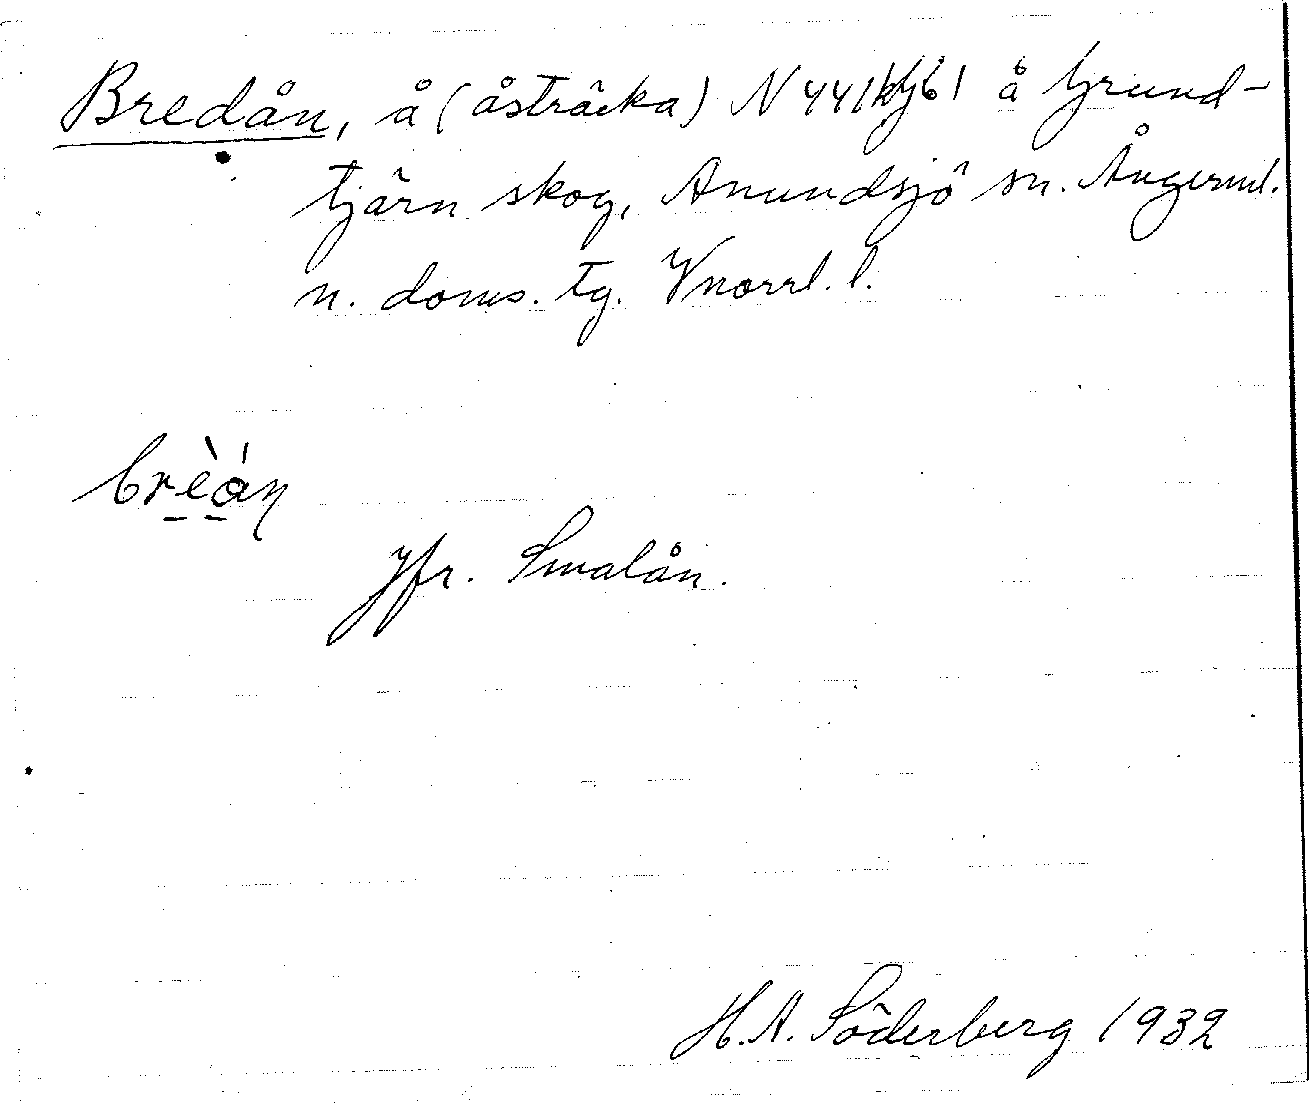 Bredån, å (åsträcka) N 441 å Grund-
tjärn skog, Anundsjö sn. Ångerml.
n. doms. tg. Vnorrl. l.
brèán
Jfr. Smalån.
H.A. Söderberg 1932